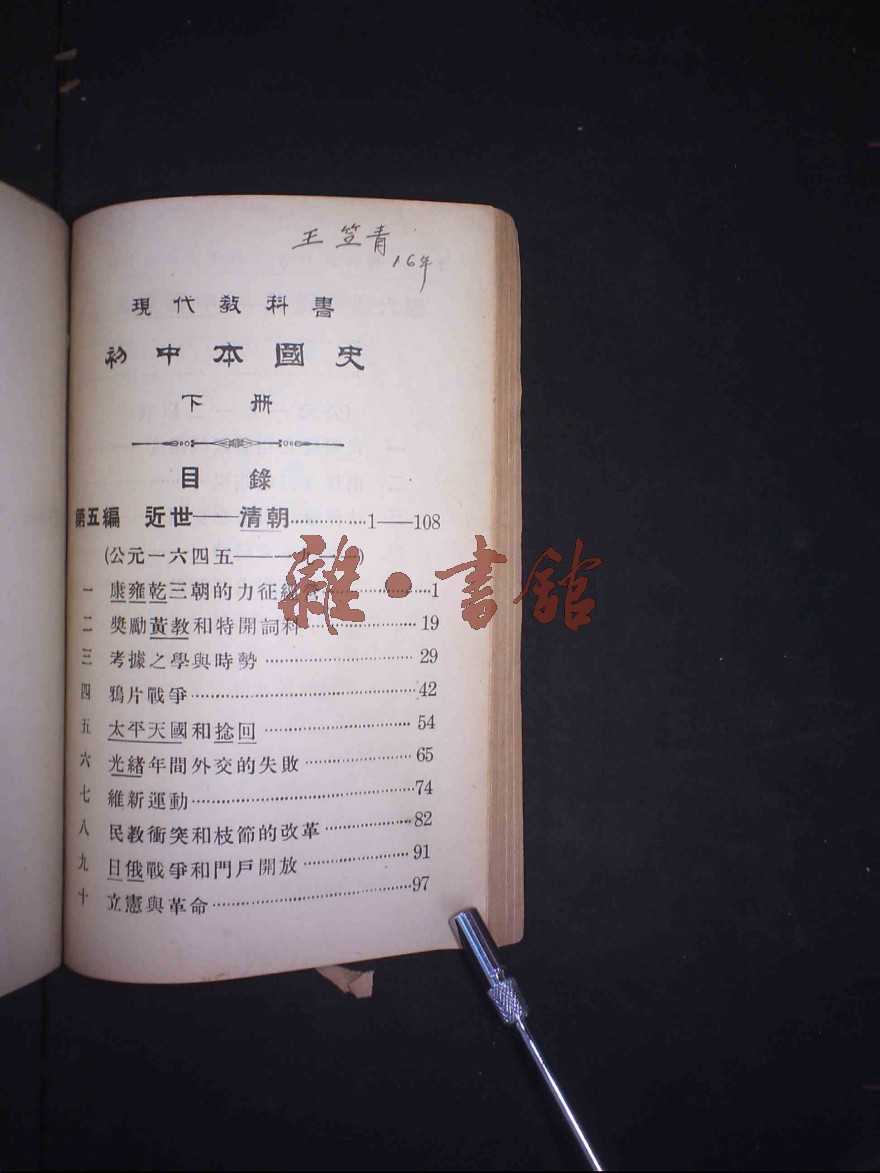 王笠青
16年
現代教科書
初中本國史
下册
目錄
第五編 近世——清朝……………1——108
(公元一六四五——一九一一)
一 康雍乾三朝的力征經營……………1
二 獎勵黃教和特開詞科……………19
三 考據之學與時勢……………29
四 鴉片戰爭……………42
五 太平天國和捻回……………54
六 光緒年間外交的失敗……………65
七 維新運動……………74
八 民教衝突和枝節的改革……………82
九 日俄戰爭和門戶開放……………91
十 立憲與革命……………97
雜·書館